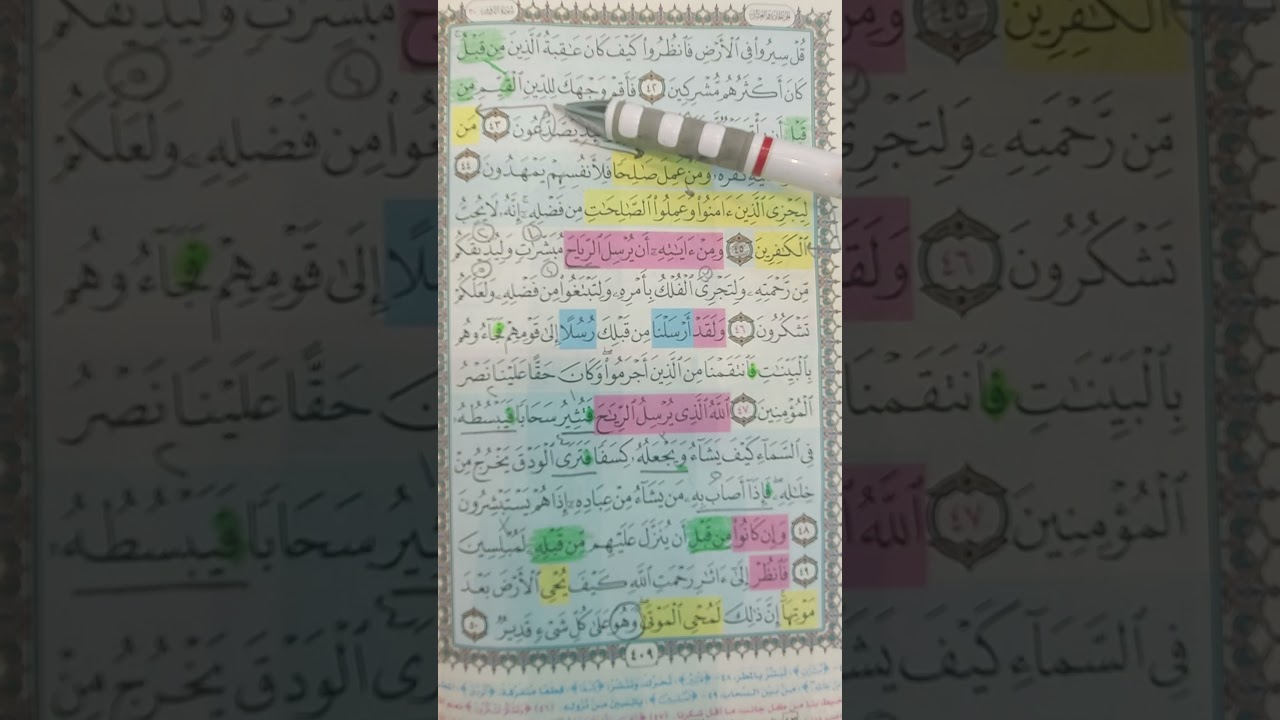 سُورَةُ الرُّومِ ٣٠
قُلْ سِيرُوا۟ فِى ٱلْأَرْضِ فَٱنظُرُوا۟ كَيْفَ كَانَ عَـٰقِبَةُ ٱلَّذِينَ مِن قَبْلُ
كَانَ أَكْثَرُهُم مُّشْرِكِينَ ٤٢ فَأَقِمْ وَجْهَكَ لِلدِّينِ ٱلْقَيِّمِ مِن
قَبْلِ أَن يَصَّدَّعُونَ ٤٣ مَن
كُفْرُهُۥ وَمَنْ عَمِلَ صَـٰلِحًا فَلِأَنفُسِهِمْ يَمْهَدُونَ ٤٤
لِيَجْزِىَ ٱلَّذِينَ ءَامَنُوا۟ وَعَمِلُوا۟ ٱلصَّـٰلِحَـٰتِ مِن فَضْلِهِۦٓ إِنَّهُۥ لَا يُحِبُّ
ٱلْكَـٰفِرِينَ ٤٥ وَمِنْ ءَايَـٰتِهِۦٓ أَن يُرْسِلَ ٱلرِّيَاحَ مُبَشِّرَٰتٍ وَلِيُذِيقَكُم
مِّن رَّحْمَتِهِۦ وَلِتَجْرِىَ ٱلْفُلْكُ بِأَمْرِهِۦ وَلِتَبْتَغُوا۟ مِن فَضْلِهِۦ وَلَعَلَّكُمْ
تَشْكُرُونَ ٤٦ وَلَقَدْ أَرْسَلْنَا مِن قَبْلِكَ رُسُلًا إِلَىٰ قَوْمِهِمْ فَجَآءُوهُم
بِٱلْبَيِّنَـٰتِ فَٱنتَقَمْنَا مِنَ ٱلَّذِينَ أَجْرَمُوا۟ ۖ وَكَانَ حَقًّا عَلَيْنَا نَصْرُ
ٱلْمُؤْمِنِينَ ٤٧ ٱللَّهُ ٱلَّذِى يُرْسِلُ ٱلرِّيَـٰحَ فَتُثِيرُ سَحَابًا فَيَبْسُطُهُۥ
فِى ٱلسَّمَآءِ كَيْفَ يَشَآءُ وَيَجْعَلُهُۥ كِسَفًا فَتَرَى ٱلْوَدْقَ يَخْرُجُ مِنْ
خِلَـٰلِهِۦ ۖ فَإِذَآ أَصَابَ بِهِۦ مَن يَشَآءُ مِنْ عِبَادِهِۦٓ إِذَا هُمْ يَسْتَبْشِرُونَ
٤٨ وَإِن كَانُوا۟ مِن قَبْلِ أَن يُنَزَّلَ عَلَيْهِم مِّن قَبْلِهِۦ لَمُبْلِسِينَ
٤٩ فَٱنظُرْ إِلَىٰٓ ءَاثَـٰرِ رَحْمَتِ ٱللَّهِ كَيْفَ يُحْىِ ٱلْأَرْضَ بَعْدَ
مَوْتِهَآ ۚ إِنَّ ذَٰلِكَ لَمُحْىِ ٱلْمَوْتَىٰ ۖ وَهُوَ عَلَىٰ كُلِّ شَىْءٍ قَدِيرٌ ٥٠
٤٠٩